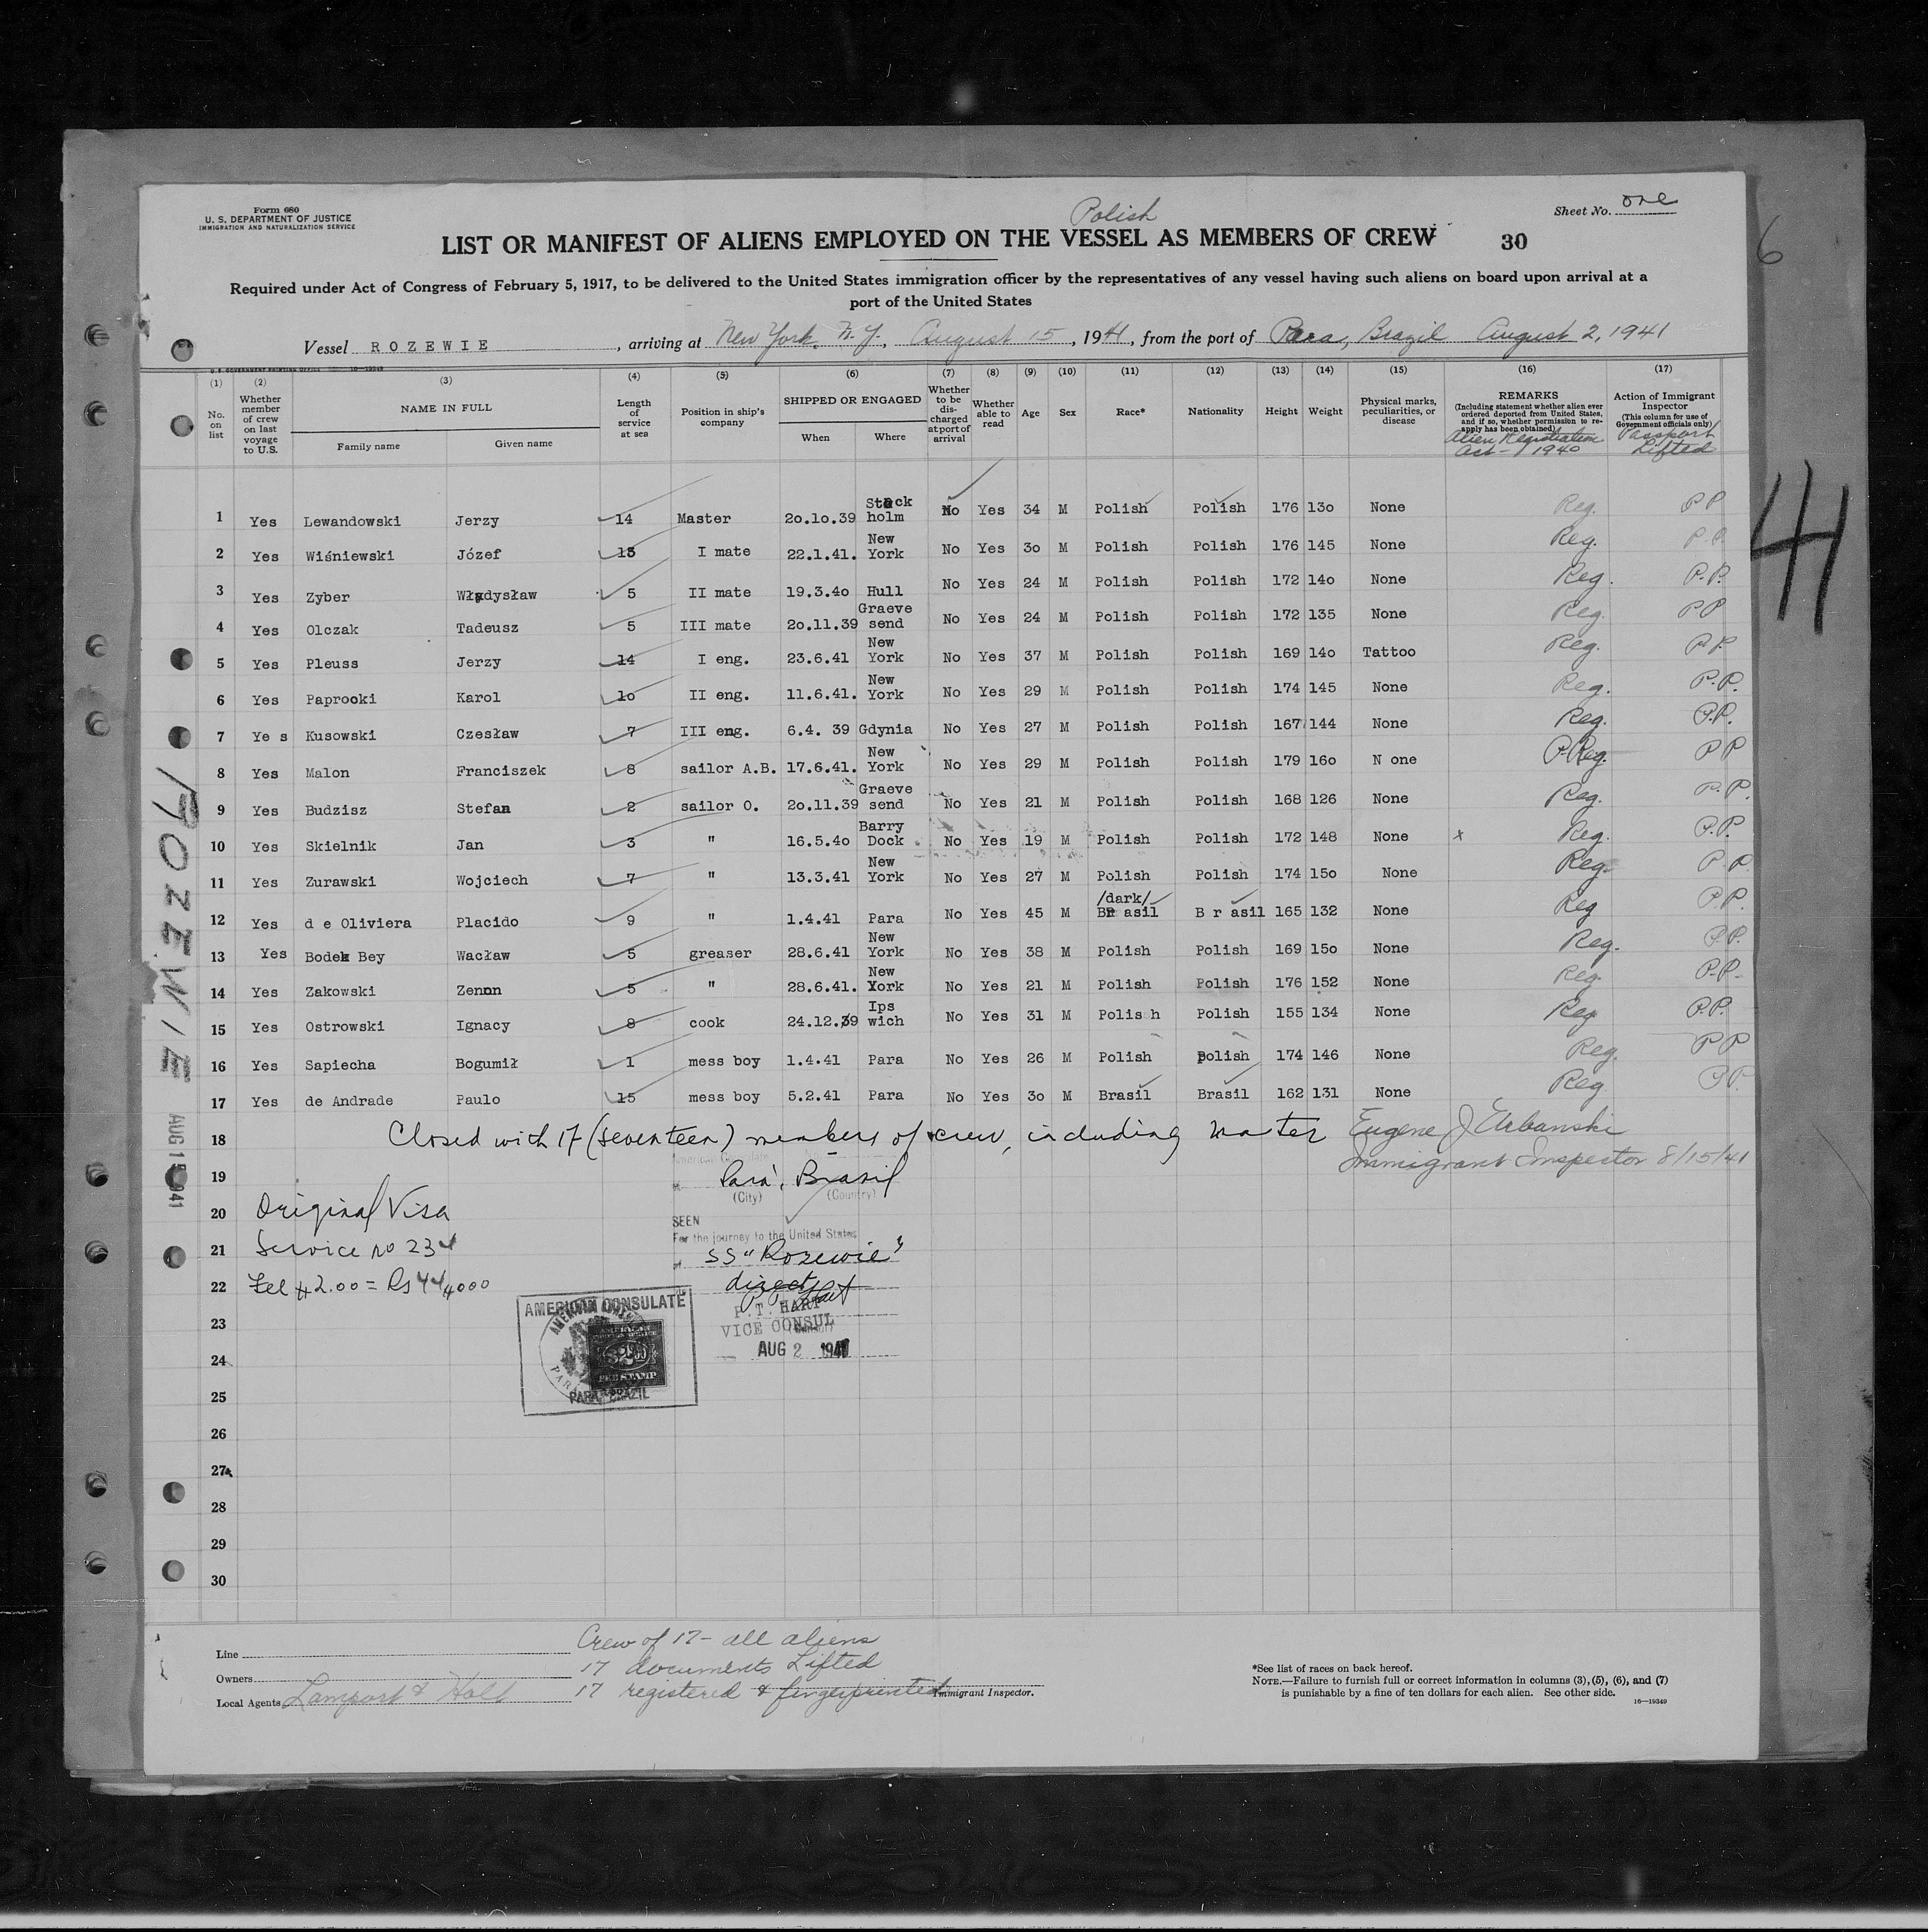 Form 680
U. S. DEPARTMENT OF JUSTICE
IMMIGRATION AND NATURALIZATION SERVICE
Sheet No. one
Polish
LIST OR MANIFEST OF ALIENS EMPLOYED ON THE VESSEL AS MEMBERS OF CREW 30
6
Required under Act of Congress of February 5, 1917, to be delivered to the United States immigration officer by the representatives of any vessel having such aliens on board upon arrival at a
port of the United States
Vessel ROZEWIE, arriving at New York, N.Y., August 15, 1941, from the port of Para, Brazil August 2, 1941
(1) No. on list
(2) Whether member of crew on last voyage to U.S.
(3) NAME IN FULL Family name Given name
(4) Length of service at sea
(5) Position in ship's company
(6) SHIPPED OR ENGAGED When Where
(7) Whether to be discharged at port of arrival
(8) Whether able to read
(9) Age
(10) Sex
(11) Race*
(12) Nationality
(13) Height
(14) Weight
(15) Physical marks, peculiarities, or disease
(16) REMARKS (Including statement whether alien ever ordered deported from United States, and if so, whether permission to reapply has been obtained) Alien Registration Act - 1940
(17) Action of Immigrant Inspector (This column for use of Government officials only) Passport Lifted
1 Yes Lewandowski Jerzy 14 Master 20.10.39 Stockholm No Yes 34 M Polish Polish 176 130 None Reg. PP
2 Yes Wiśniewski Józef 13 I mate 22.1.41. New York No Yes 30 M Polish Polish 176 145 None Reg. P.P.
3 Yes Zyber Władysław 5 II mate 19.3.40 Hull No Yes 24 M Polish Polish 172 140 None Reg. P.P.
4 Yes Olczak Tadeusz 5 III mate 20.11.39 Graeve send No Yes 24 M Polish Polish 172 135 None Reg. PP
5 Yes Pleuss Jerzy 14 I eng. 23.6.41 New York No Yes 37 M Polish Polish 169 140 Tattoo Reg. P.P.
6 Yes Paprocki Karol 10 II eng. 11.6.41. New York No Yes 29 M Polish Polish 174 145 None Reg. P.P.
7 Ye s Kusowski Czesław 7 III eng. 6.4. 39 Gdynia No Yes 27 M Polish Polish 167 144 None Reg. P.P.
8 Yes Malon Franciszek 8 sailor A.B. 17.6.41. New York No Yes 29 M Polish Polish 179 160 N one Reg. PP
9 Yes Budzisz Stefan 2 sailor O. 20.11.39 Graeve send No Yes 21 M Polish Polish 168 126 None Reg. P.P.
10 Yes Skielnik Jan 3 " 16.5.40 Barry Dock No Yes 19 M Polish Polish 172 148 None x Reg. P.P.
11 Yes Zurawski Wojciech 7 " 13.3.41 New York No Yes 27 M Polish Polish 174 150 None Reg. P.P.
12 Yes d e Oliviera Placido 9 " 1.4.41 Para No Yes 45 M /dark/ Br asil B r asil 165 132 None Reg P.P.
13 Yes Bodek Bey Wacław 5 greaser 28.6.41 New York No Yes 38 M Polish Polish 169 150 None Reg. P.P.
14 Yes Zakowski Zenon 5 " 28.6.41. New York No Yes 21 M Polish Polish 176 152 None Reg. P.P.
15 Yes Ostrowski Ignacy 8 cook 24.12.39 Ips wich No Yes 31 M Polis h Polish 155 134 None Reg P.P.
16 Yes Sapiecha Bogumił 1 mess boy 1.4.41 Para No Yes 26 M Polish Polish 174 146 None Reg. PP
17 Yes de Andrade Paulo 15 mess boy 5.2.41 Para No Yes 30 M Brasil Brasil 162 131 None Reg. P.P.
18 Closed with 17 (seventeen) members of crew, including master Eugene J Urbanski
Immigrant Inspector 8/15/41
19 Pará, Brasil
(City) (Country)
20 Original Visa
SEEN
For the journey to the United States
21 Service no 234
SS "Rozewie"
22 Fee $2.00 = Rs 44,000
direct
23 P. T. HART
VICE CONSUL
24 AUG 2 1941
AMERICAN CONSULATE
FEE STAMP
PARA, BRAZIL
25
26
27
28
29
30
ROZEWIE
AUG 15 1941
41
Line
Owners
Local Agents Lamport & Holt
Crew of 17 - all aliens
17 documents Lifted
17 registered & fingerprinted
Immigrant Inspector.
*See list of races on back hereof.
NOTE.—Failure to furnish full or correct information in columns (3), (5), (6), and (7)
is punishable by a fine of ten dollars for each alien. See other side.
16—19349